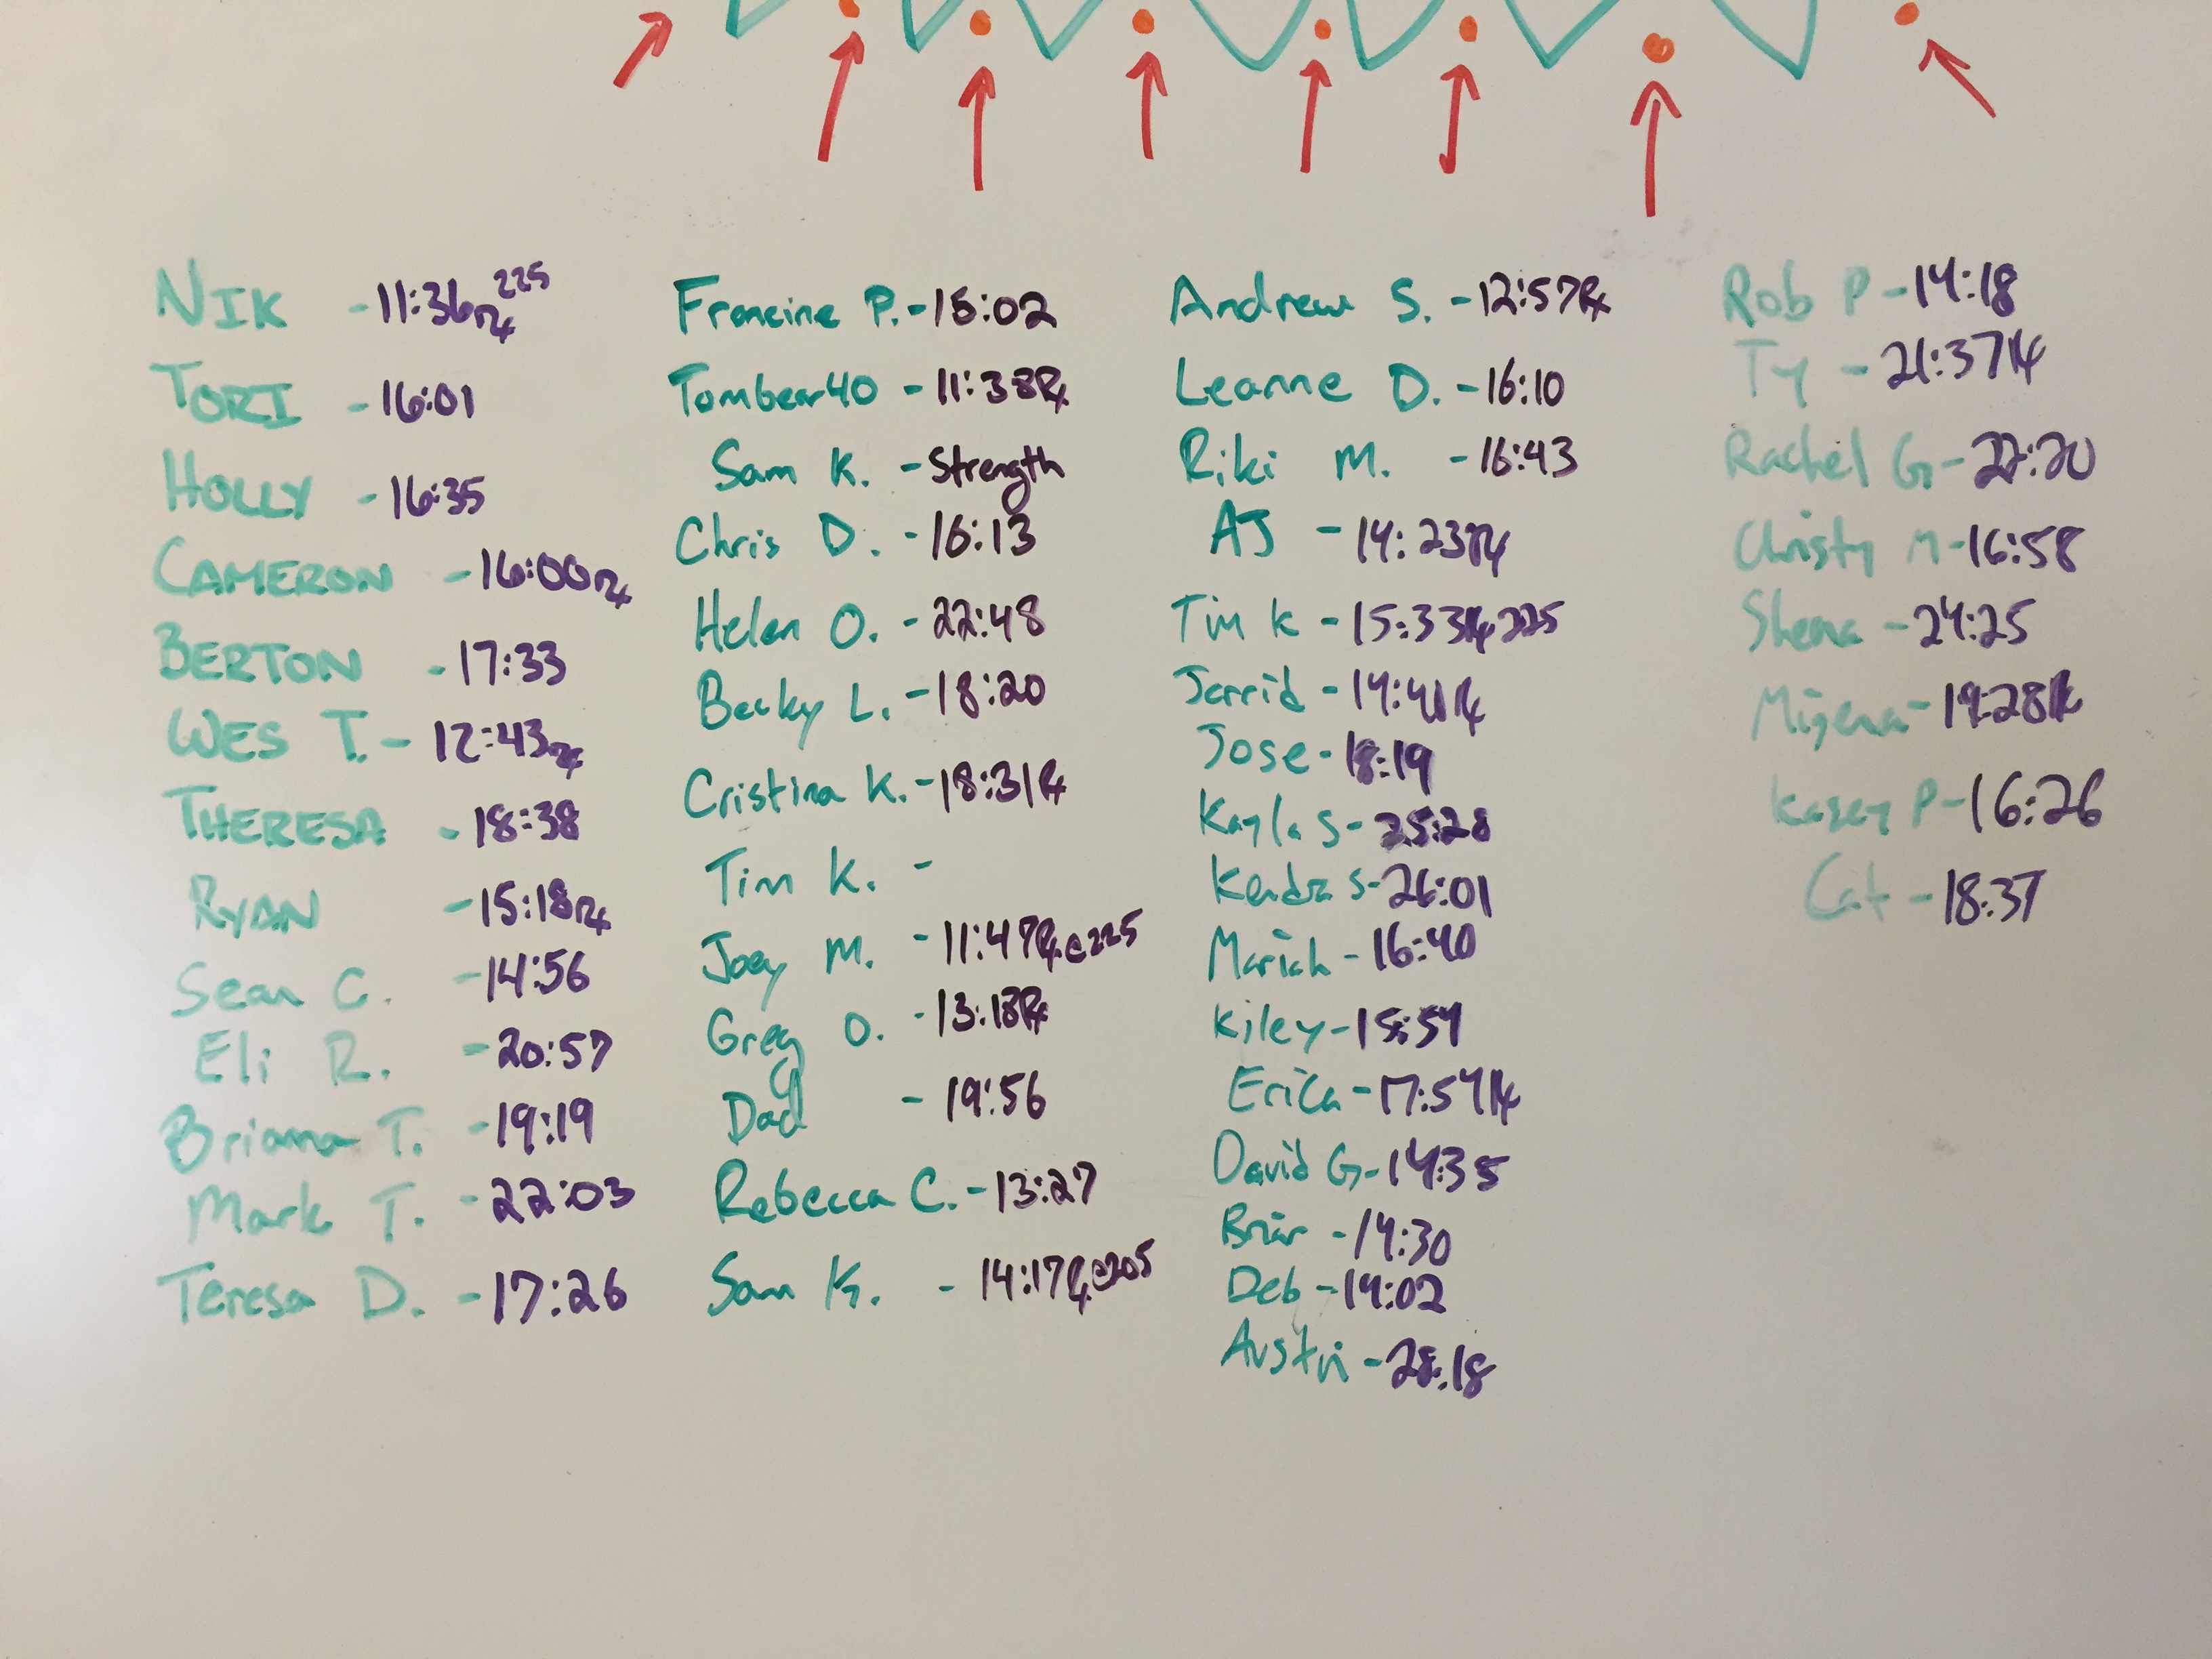 NIK - 11:36 Rx 225
TORI - 16:01
HOLLY - 16:35
CAMERON - 16:00 Rx
BERTON - 17:33
WES T. - 12:43 Rx
THERESA - 18:38
RYAN - 15:18 Rx
Sean C. - 14:56
Eli R. - 20:57
Briana T. - 19:19
Mark T. - 22:03
Teresa D. - 17:26
Francine P. - 15:02
Tombear40 - 11:38 Rx
Sam K. - Strength
Chris D. - 16:13
Helen O. - 22:48
Becky L. - 18:20
Cristina K. - 18:31 Rx
Tim K. -
Joey M. - 11:47 Rx @225
Greg O. - 13:18 Rx
Dad - 19:56
Rebecca C. - 13:27
Sam K. - 14:17 Rx @205
Andrew S. - 12:57 Rx
Leanne D. - 16:10
Riki M. - 16:43
AJ - 14:23 Rx
Tim K - 15:33 Rx 225
Jarrid - 14:41 Rx
Jose - 18:19
Kayla S - 25:28
Kendra S - 26:01
Mariah - 16:40
Kiley - 15:59
Erica - 17:54 Rx
David G - 14:35
Brian - 14:30
Deb - 19:02
Austin - 28:18
Rob P - 14:18
Ty - 21:37 Rx
Rachel G - 22:20
Christy M - 16:58
Shena - 24:25
- 19:28 Rx
Kasey P - 16:26
Cat - 18:37